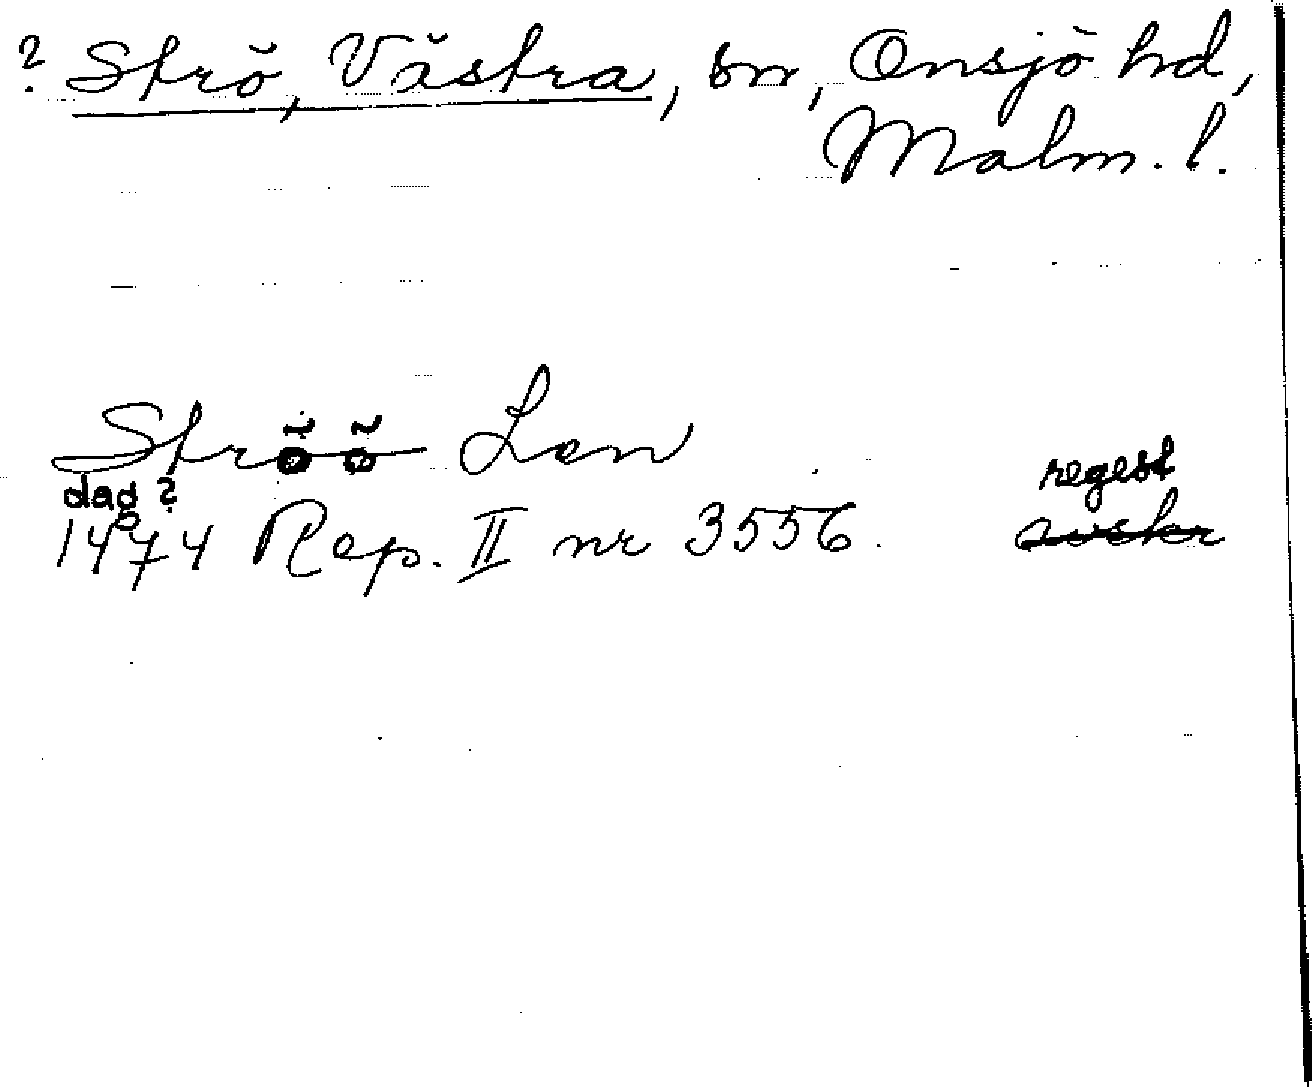 ? Strö, Västra, sn, Onsjö hd,
Malm. l.
Ströö Len
dad ?
1474 Rep. II nr 3556.
regest
avskr